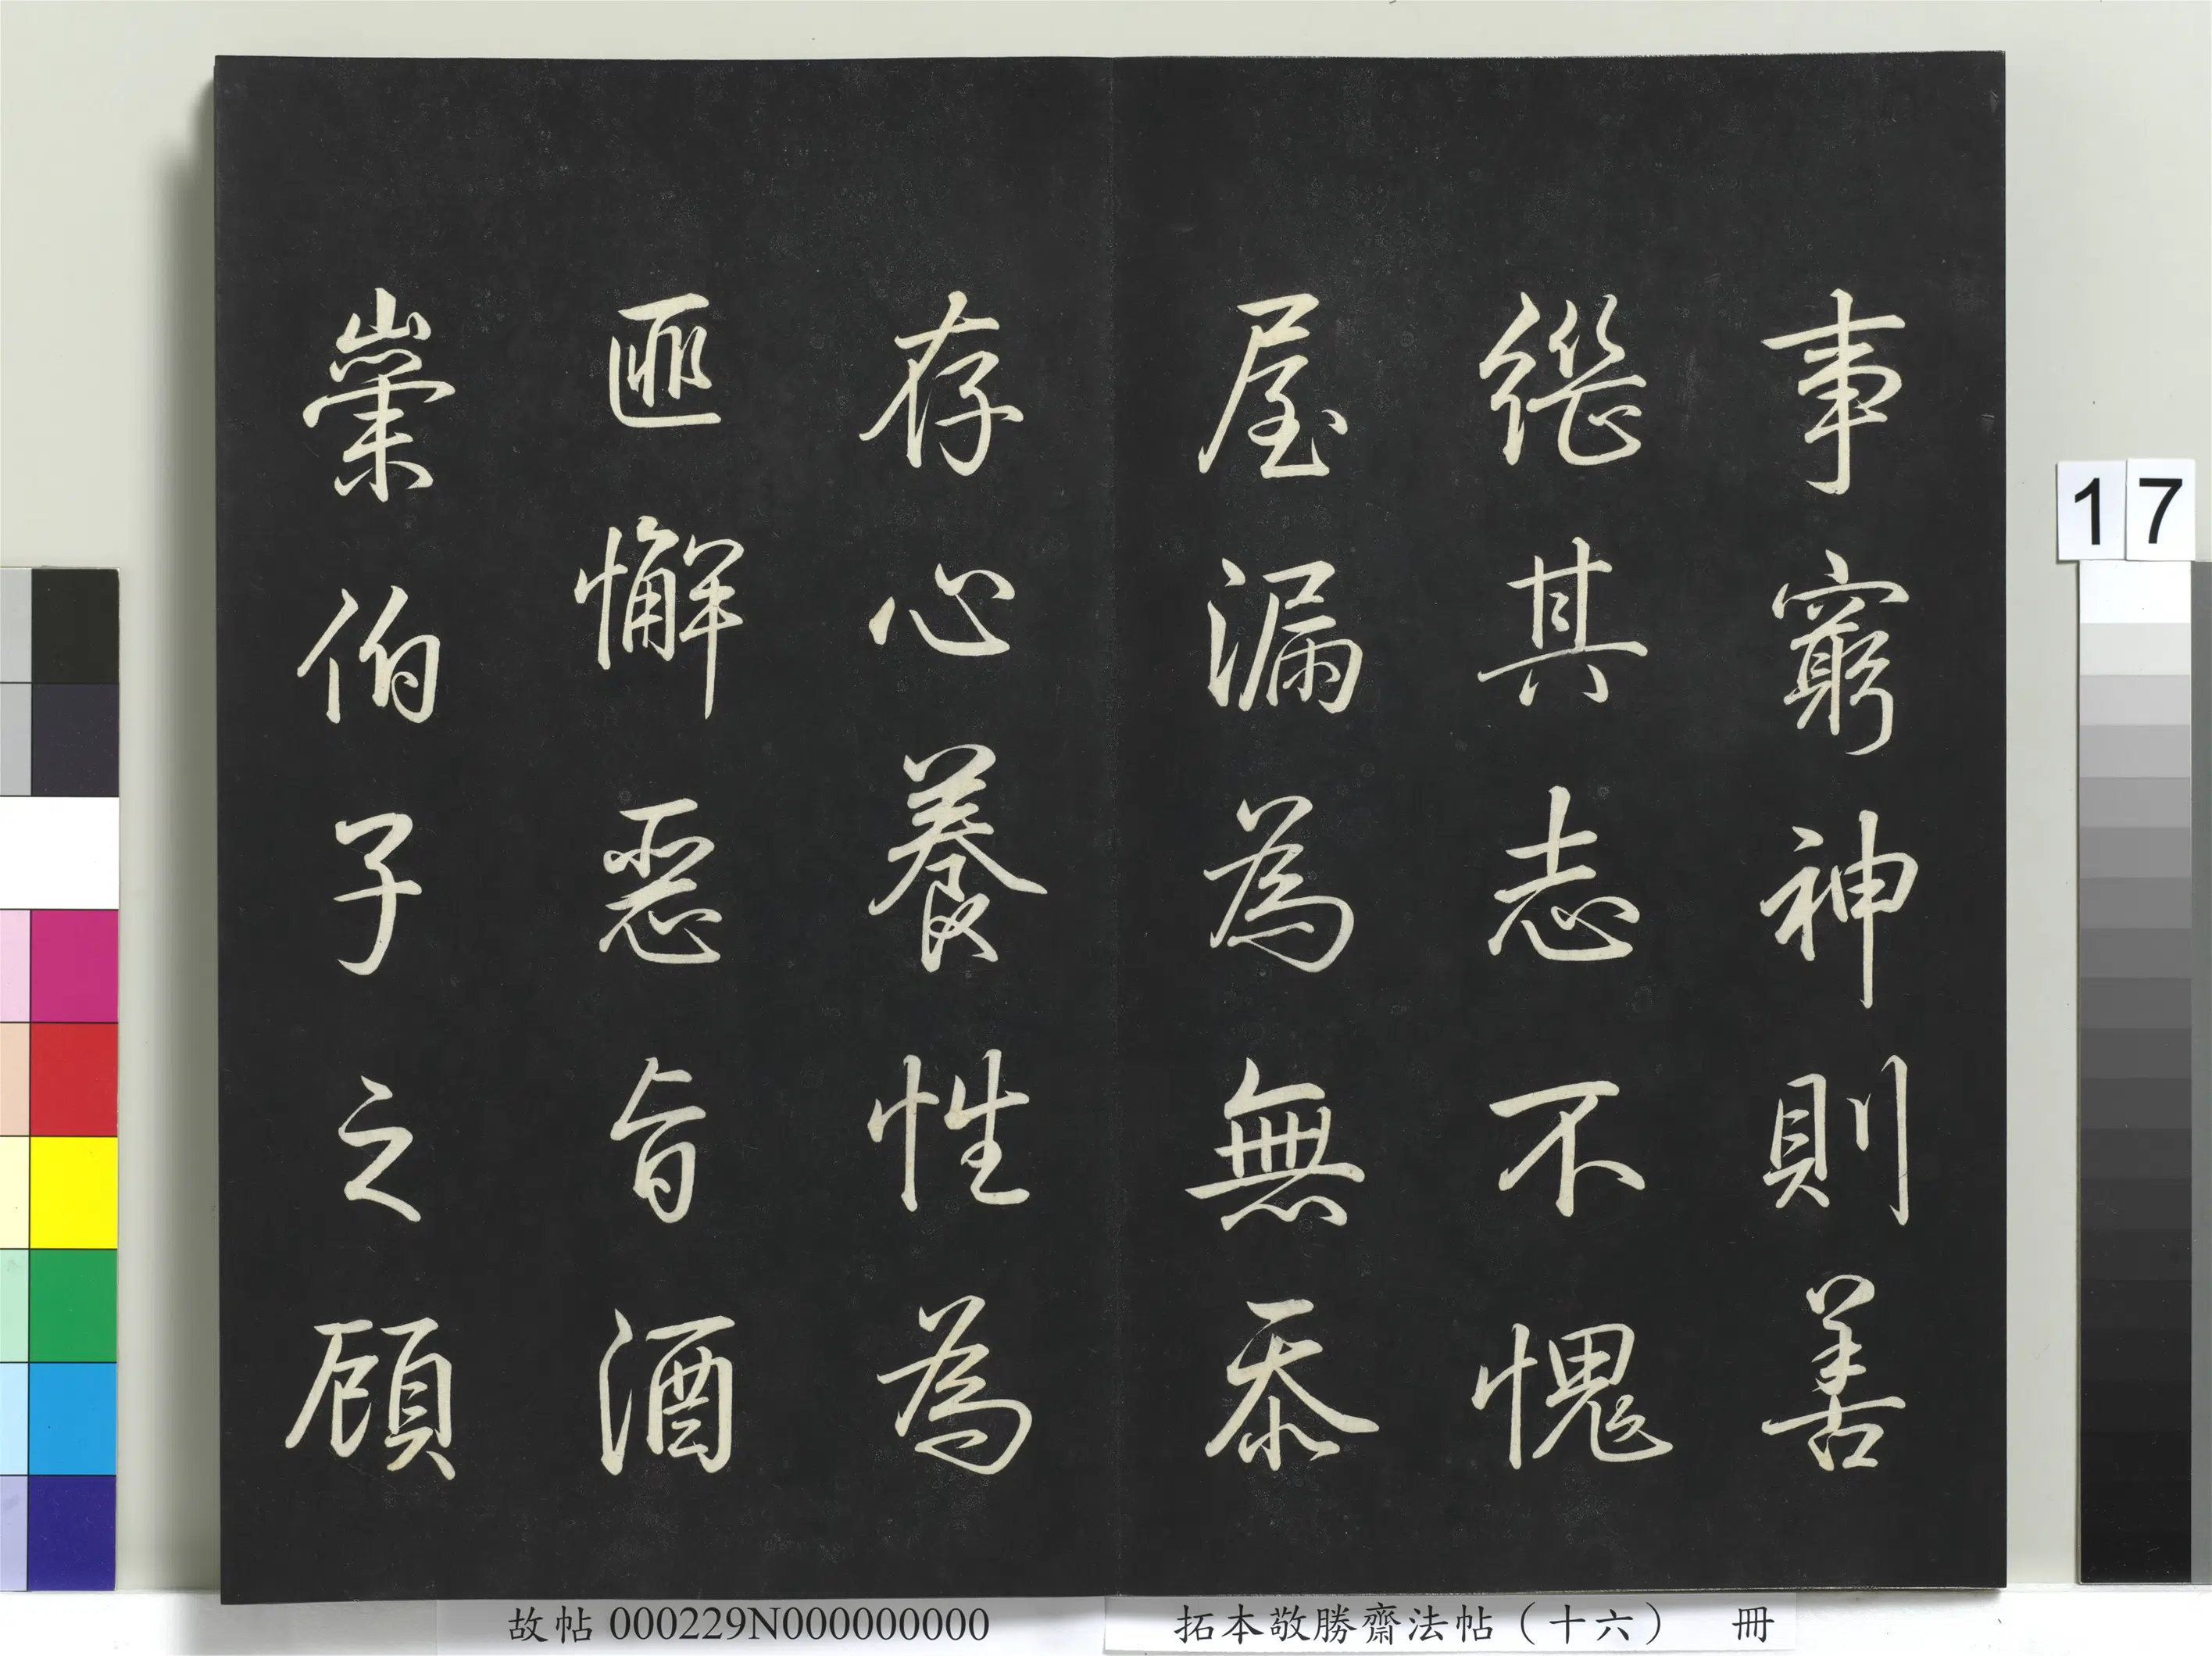 事窮神則善
繼其志不愧
屋漏為無忝
存心養性為
匪懈惡旨酒
崇伯子之顧
17
故帖 000229N000000000
拓本敬勝齋法帖（十六） 冊